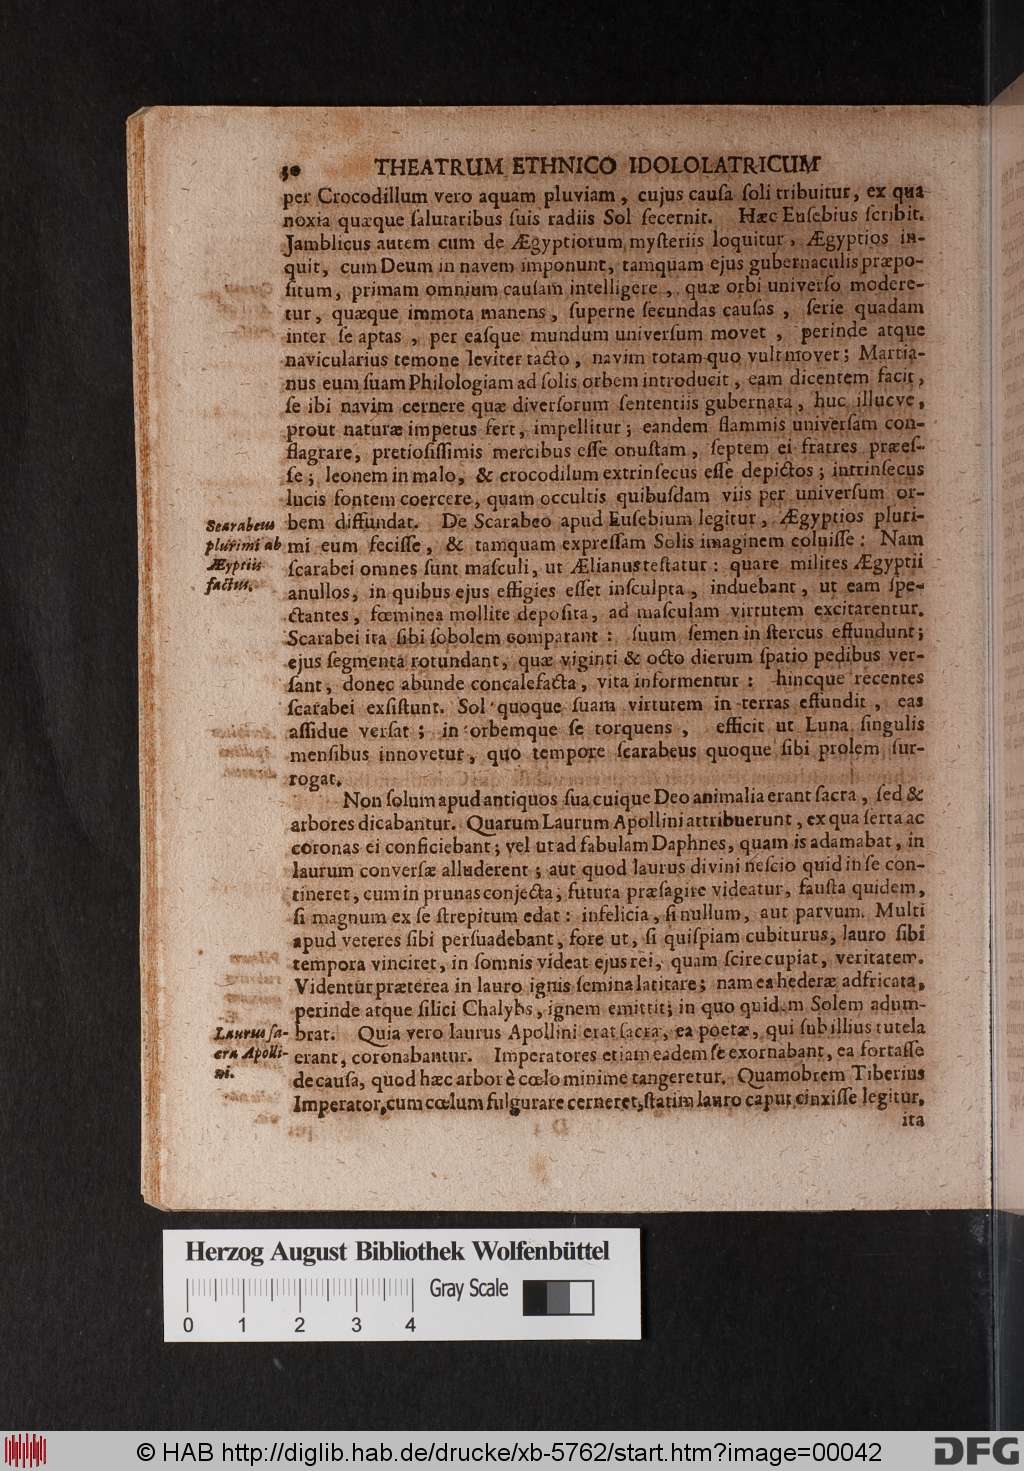 30 THEATRUM ETHNICO IDOLOLATRICUM
per Crocodillum vero aquam pluviam, cujus cauſa ſoli tribuitur, ex qua
noxia quæque ſalutaribus ſuis radiis Sol ſecernit. Hæc Euſebius ſcribit.
Jamblicus autem cum de Ægyptiorum myſteriis loquitur, Ægyptios in-
quit, cum Deum in navem imponunt, tamquam ejus gubernaculis præpo-
ſitum, primam omnium cauſam intelligere, quæ orbi univerſo modere-
tur, quæque immota manens, ſuperne ſecundas cauſas, ſerie quadam
inter ſe aptas, per eaſque mundum univerſum movet, perinde atque
navicularius temone leviter tacto, navim totam quo vult movet; Martia-
nus eum ſuam Philologiam ad ſolis orbem introducit, eam dicentem facit,
ſe ibi navim cernere quæ diverſorum ſententiis gubernata, huc illucve,
prout naturæ impetus fert, impellitur; eandem flammis univerſam con-
flagrare, pretioſiſſimis mercibus eſſe onuſtam, ſeptem ei fratres præeſ-
ſe; leonem in malo, & crocodilum extrinſecus eſſe depictos; intrinſecus
lucis fontem coercere, quam occultis quibuſdam viis per univerſum or-
bem diffundat. De Scarabeo apud Euſebium legitur, Ægyptios pluri-
mi eum feciſſe, & tamquam expreſſam Solis imaginem coluiſſe: Nam
ſcarabei omnes ſunt maſculi, ut Ælianus teſtatur: quare milites Ægyptii
anullos, in quibus ejus effigies eſſet inſculpta, induebant, ut eam ſpe-
ctantes, fœminea mollite depoſita, ad maſculam virtutem excitarentur.
Scarabei ita ſibi ſobolem comparant: ſuum ſemen in ſtercus effundunt;
ejus ſegmenta rotundant, quæ viginti & octo dierum ſpatio pedibus ver-
ſant, donec abunde concalefacta, vita informentur: hincque recentes
ſcarabei exſiſtunt. Sol quoque ſuam virtutem in terras effundit, eas
aſſidue verſat; in orbemque ſe torquens, efficit ut Luna ſingulis
menſibus innovetur, quo tempore ſcarabeus quoque ſibi prolem ſur-
rogat.
Scarabeus
plurimi ab
Ægyptiis
factus.
Non ſolum apud antiquos ſua cuique Deo animalia erant ſacra, ſed &
arbores dicabantur. Quarum Laurum Apollini attribuerunt, ex qua ſerta ac
coronas ei conficiebant; vel ut ad fabulam Daphnes, quam is adamabat, in
laurum converſæ alluderent; aut quod laurus divini neſcio quid in ſe con-
tineret, cum in prunas conjecta, futura præſagire videatur, fauſta quidem,
ſi magnum ex ſe ſtrepitum edat: infelicia, ſi nullum, aut parvum. Multi
apud veteres ſibi perſuadebant, fore ut, ſi quiſpiam cubiturus, lauro ſibi
tempora vinciret, in ſomnis videat ejus rei, quam ſcire cupiat, veritatem.
Videntur præterea in lauro ignis ſemina latitare; nam ea hederæ adfricata,
perinde atque ſilici Chalybs, ignem emittit; in quo quidem Solem adum-
brat. Quia vero laurus Apollini erat ſacra, ea poetæ, qui ſub illius tutela
erant, coronabantur. Imperatores etiam eadem ſe exornabant, ea fortaſſe
de cauſa, quod hæc arbor è cœlo minime tangeretur. Quamobrem Tiberius
Imperator, cum cœlum fulgurare cerneret, ſtatim lauro caput cinxiſſe legitur,
ita
Laurus ſa-
cra Apolli-
ni.
Herzog August Bibliothek Wolfenbüttel
Gray Scale
0 1 2 3 4
© HAB http://diglib.hab.de/drucke/xb-5762/start.htm?image=00042
DFG